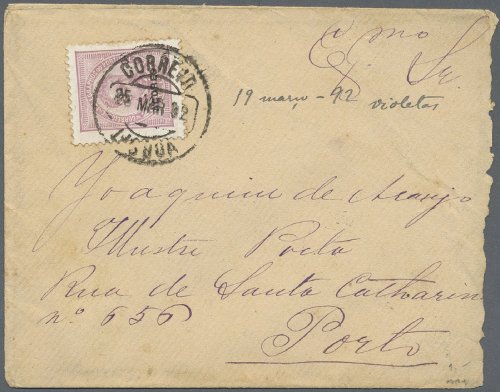 Exmo Sr.
19 março - 92 violetas
CORREIO
25 MAR 92
LISBOA
Joaquim de Araujo
Illustre Poeta
Rua de Santa Catharin
nº 656
Porto